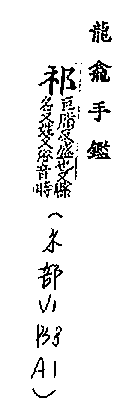 龍龕手鑑
祁
巨脂反盛也又縣
名又姓又俗音時
(示部 V1 P38 A1)